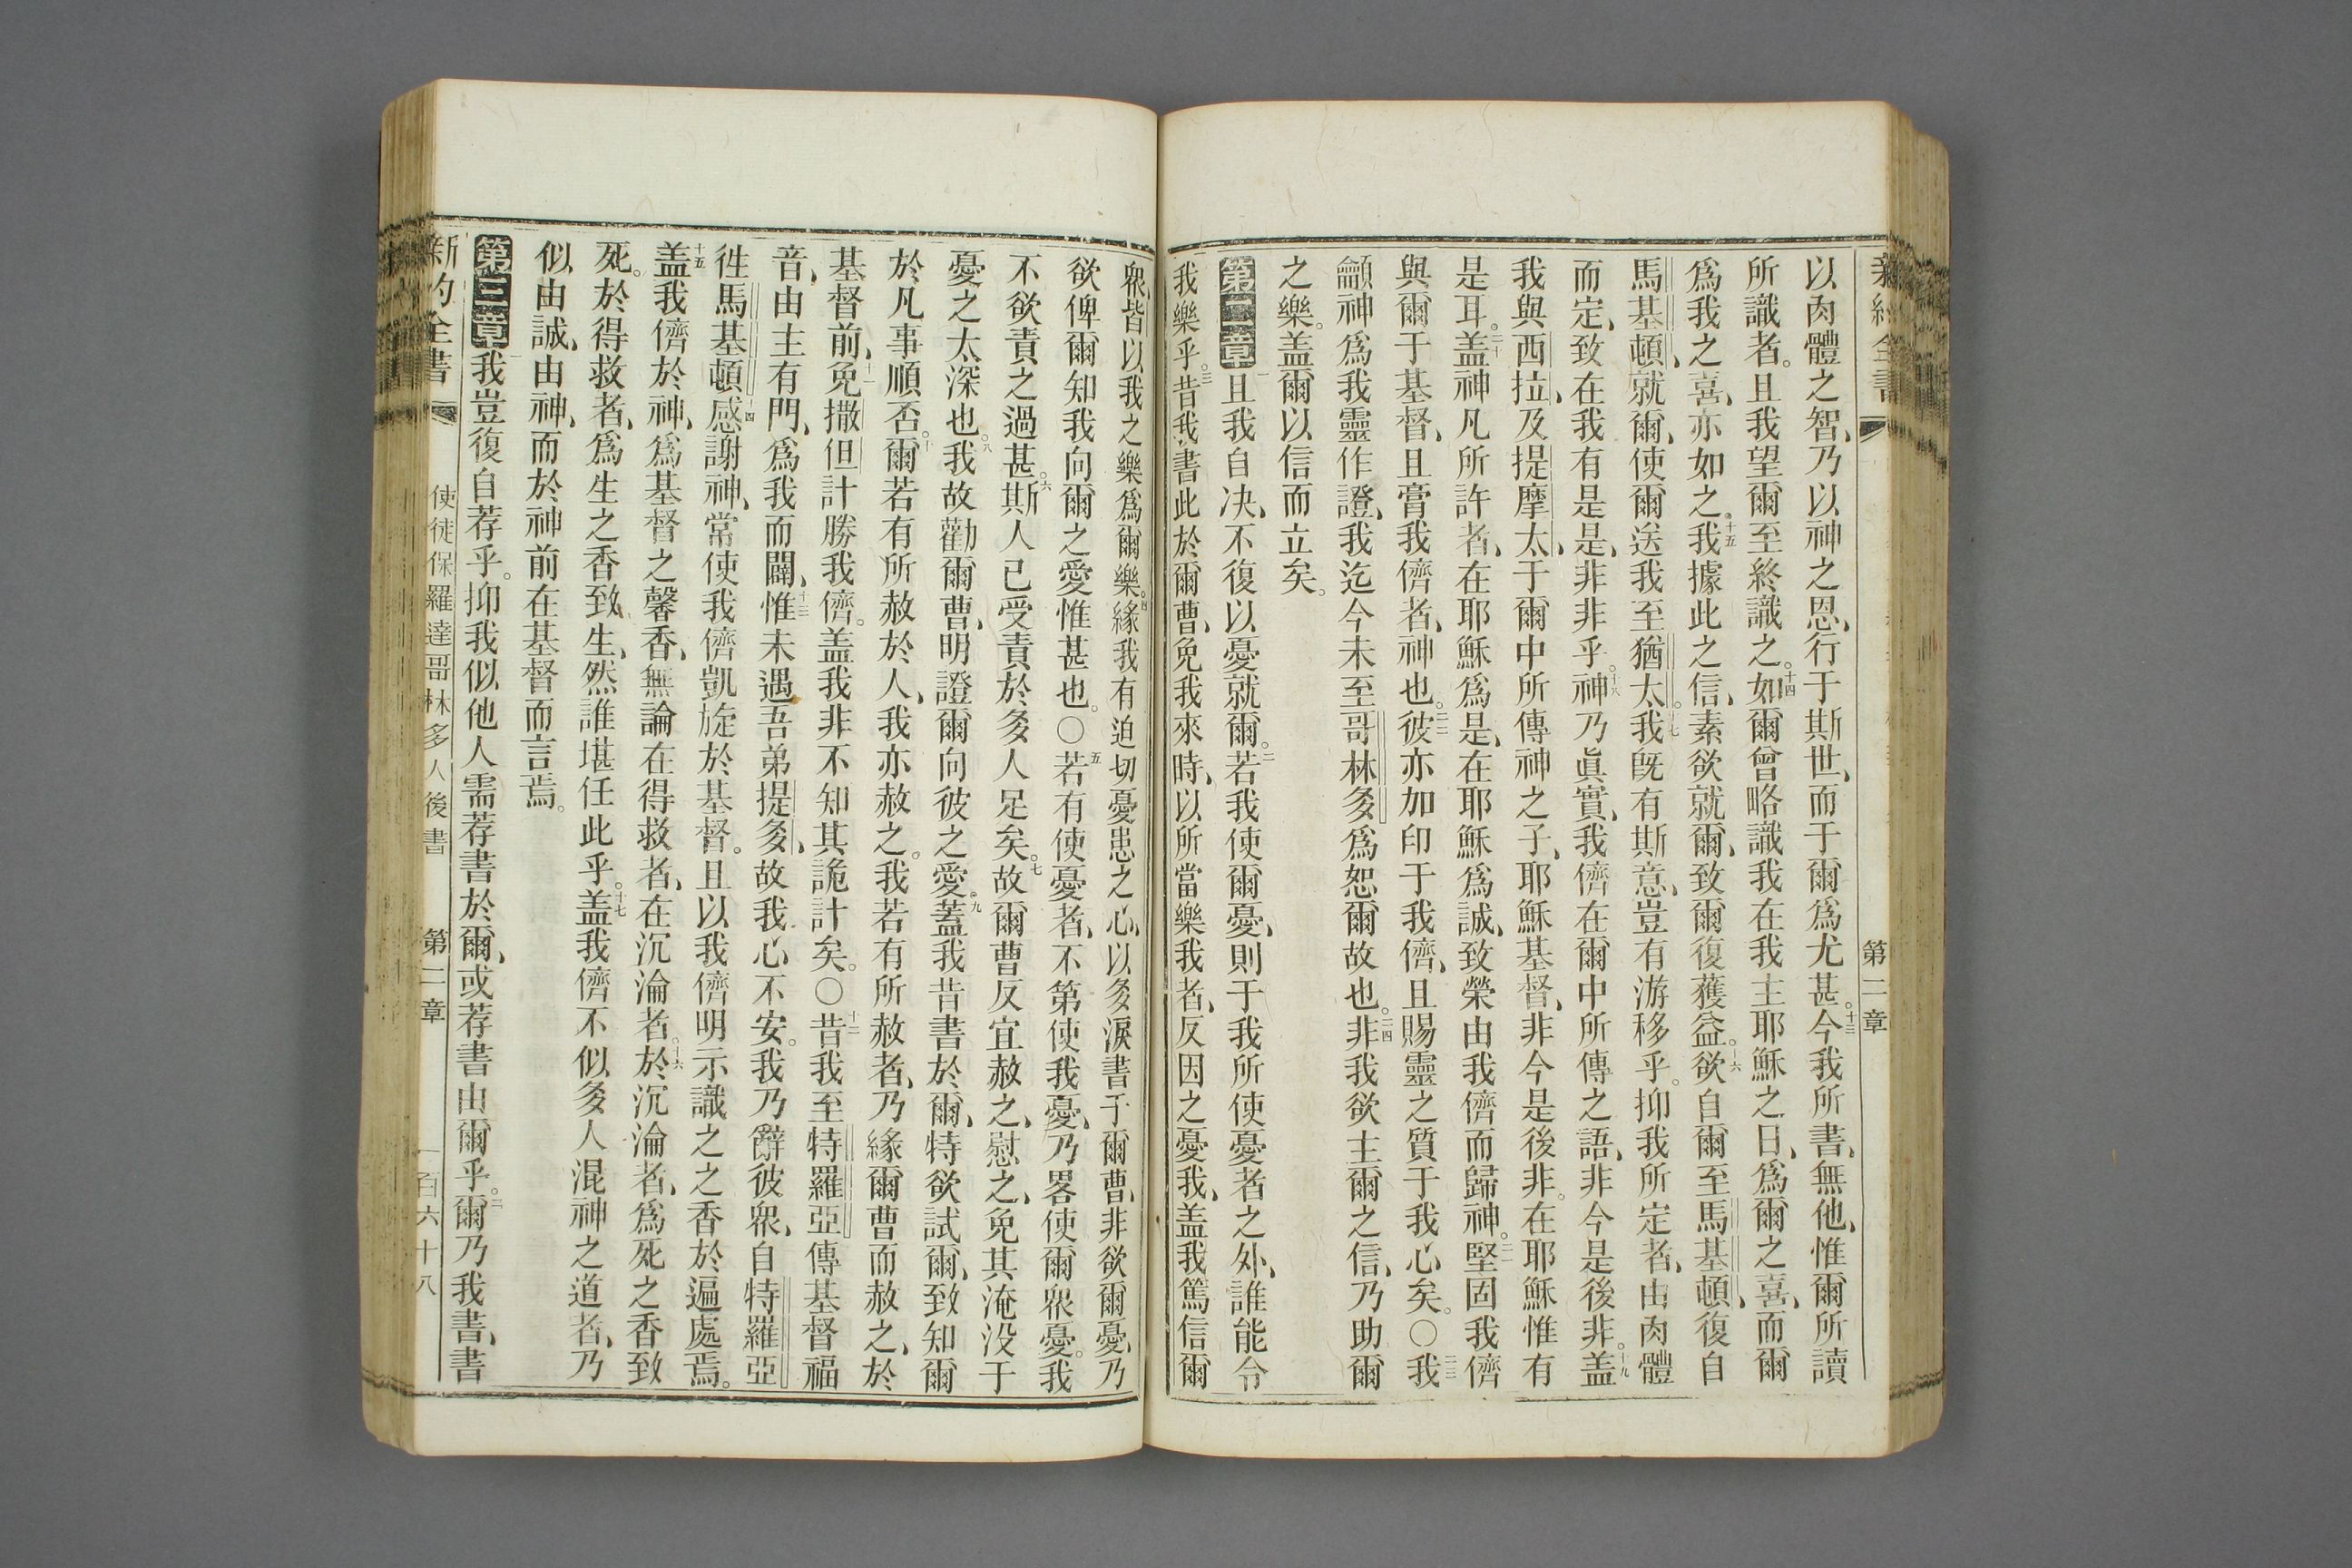 新約全書
第二章
以肉體之智、乃以神之恩、行于斯世、而于爾爲尤甚。十三今我所書、無他、惟爾所讀
所識者。且我望爾至終識之。十四如爾曾略識我在我主耶穌之日、爲爾之喜、而爾
爲我之喜、亦如之。十五我據此之信、素欲就爾、致爾復獲益。十六欲自爾至馬基頓、復自
馬基頓、就爾、使爾送我至猶太。十七我旣有斯意、豈有游移乎。抑我所定者、由肉體
而定、致在我有是是、非非乎。十八神乃眞實、我儕在爾中所傳之語、非今是後非。十九盖
我與西拉、及提摩太、于爾中所傳神之子、耶穌基督、非今是後非。在耶穌惟有
是耳。二十盖神凡所許者、在耶穌爲是、在耶穌爲誠、致榮由我儕而歸神。二一堅固我儕
與爾于基督、且膏我儕者、神也。二二彼亦加印于我儕、且賜靈之質于我心矣。〇二三我
籲神爲我靈作證、我迄今未至哥林多、爲恕爾故也。二四非我欲主爾之信、乃助爾
之樂。盖爾以信而立矣。
第二章一且我自决、不復以憂就爾。二若我使爾憂、則于我所使憂者之外、誰能令
我樂乎。三昔我書此於爾曹、免我來時、以所當樂我者、反因之憂我、盖我篤信爾
衆、皆以我之樂爲爾樂。四緣我有迫切憂患之心、以多淚書于爾曹、非欲爾憂、乃
欲俾爾知我向爾之愛惟甚也。〇五若有使憂者、不第使我憂、乃畧使爾衆憂。我
不欲責之過甚。六斯人已受責於多人足矣。七故爾曹反宜赦之、慰之、免其淹没于
憂之太深也。八我故勸爾曹、明證爾向彼之愛。九蓋我昔書於爾、特欲試爾、致知爾
於凡事順否。十爾若有所赦於人、我亦赦之。我若有所赦者、乃緣爾曹而赦之、於
基督前、十一免撒但計勝我儕。盖我非不知其詭計矣。〇十二昔我至特羅亞傳基督福
音、由主有門、爲我而闢、十三惟未遇吾弟提多、故我心不安。我乃辭彼衆、自特羅亞
徃馬基頓。十四感謝神、常使我儕凱旋於基督。且以我儕明示識之之香於遍處焉。
十五盖我儕於神、爲基督之馨香、無論在得救者、在沉淪者。十六於沉淪者、爲死之香致
死。於得救者、爲生之香致生、然誰堪任此乎。十七盖我儕不似多人混神之道者、乃
似由誠、由神、而於神前在基督而言焉。
第三章一我豈復自荐乎。抑我似他人需荐書於爾、或荐書由爾乎。二爾乃我書、書
新約全書
使徒保羅達哥林多人後書
第二章
一百六十八